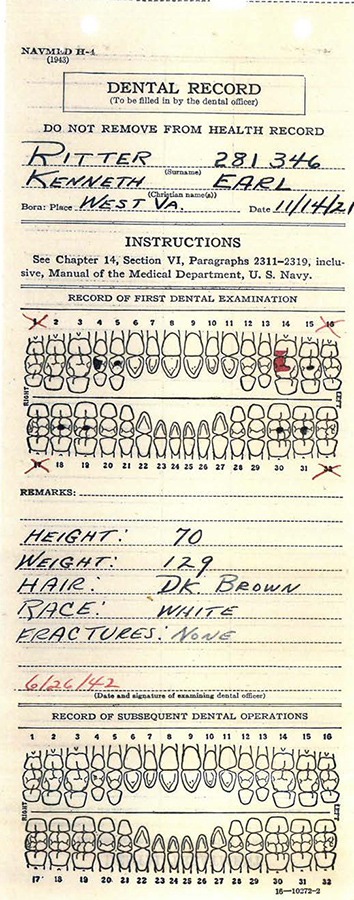 NAVMED H-4
(1943)
DENTAL RECORD
(To be filled in by the dental officer)
DO NOT REMOVE FROM HEALTH RECORD
RITTER 281 346
(Surname)
KENNETH EARL
(Christian name(s))
Born: Place WEST VA. Date 11/14/21
INSTRUCTIONS
See Chapter 14, Section VI, Paragraphs 2311–2319, inclu-
sive, Manual of the Medical Department, U. S. Navy.
RECORD OF FIRST DENTAL EXAMINATION
1 2 3 4 5 6 7 8 9 10 11 12 13 14 15 16
RIGHT LEFT
17 18 19 20 21 22 23 24 25 26 27 28 29 30 31 32
REMARKS:
HEIGHT: 70
WEIGHT: 129
HAIR: DK BROWN
RACE: WHITE
FRACTURES: NONE
6/26/42
(Date and signature of examining dental officer)
RECORD OF SUBSEQUENT DENTAL OPERATIONS
1 2 3 4 5 6 7 8 9 10 11 12 13 14 15 16
RIGHT LEFT
17 18 19 20 21 22 23 24 25 26 27 28 29 30 31 32
16—10272-2